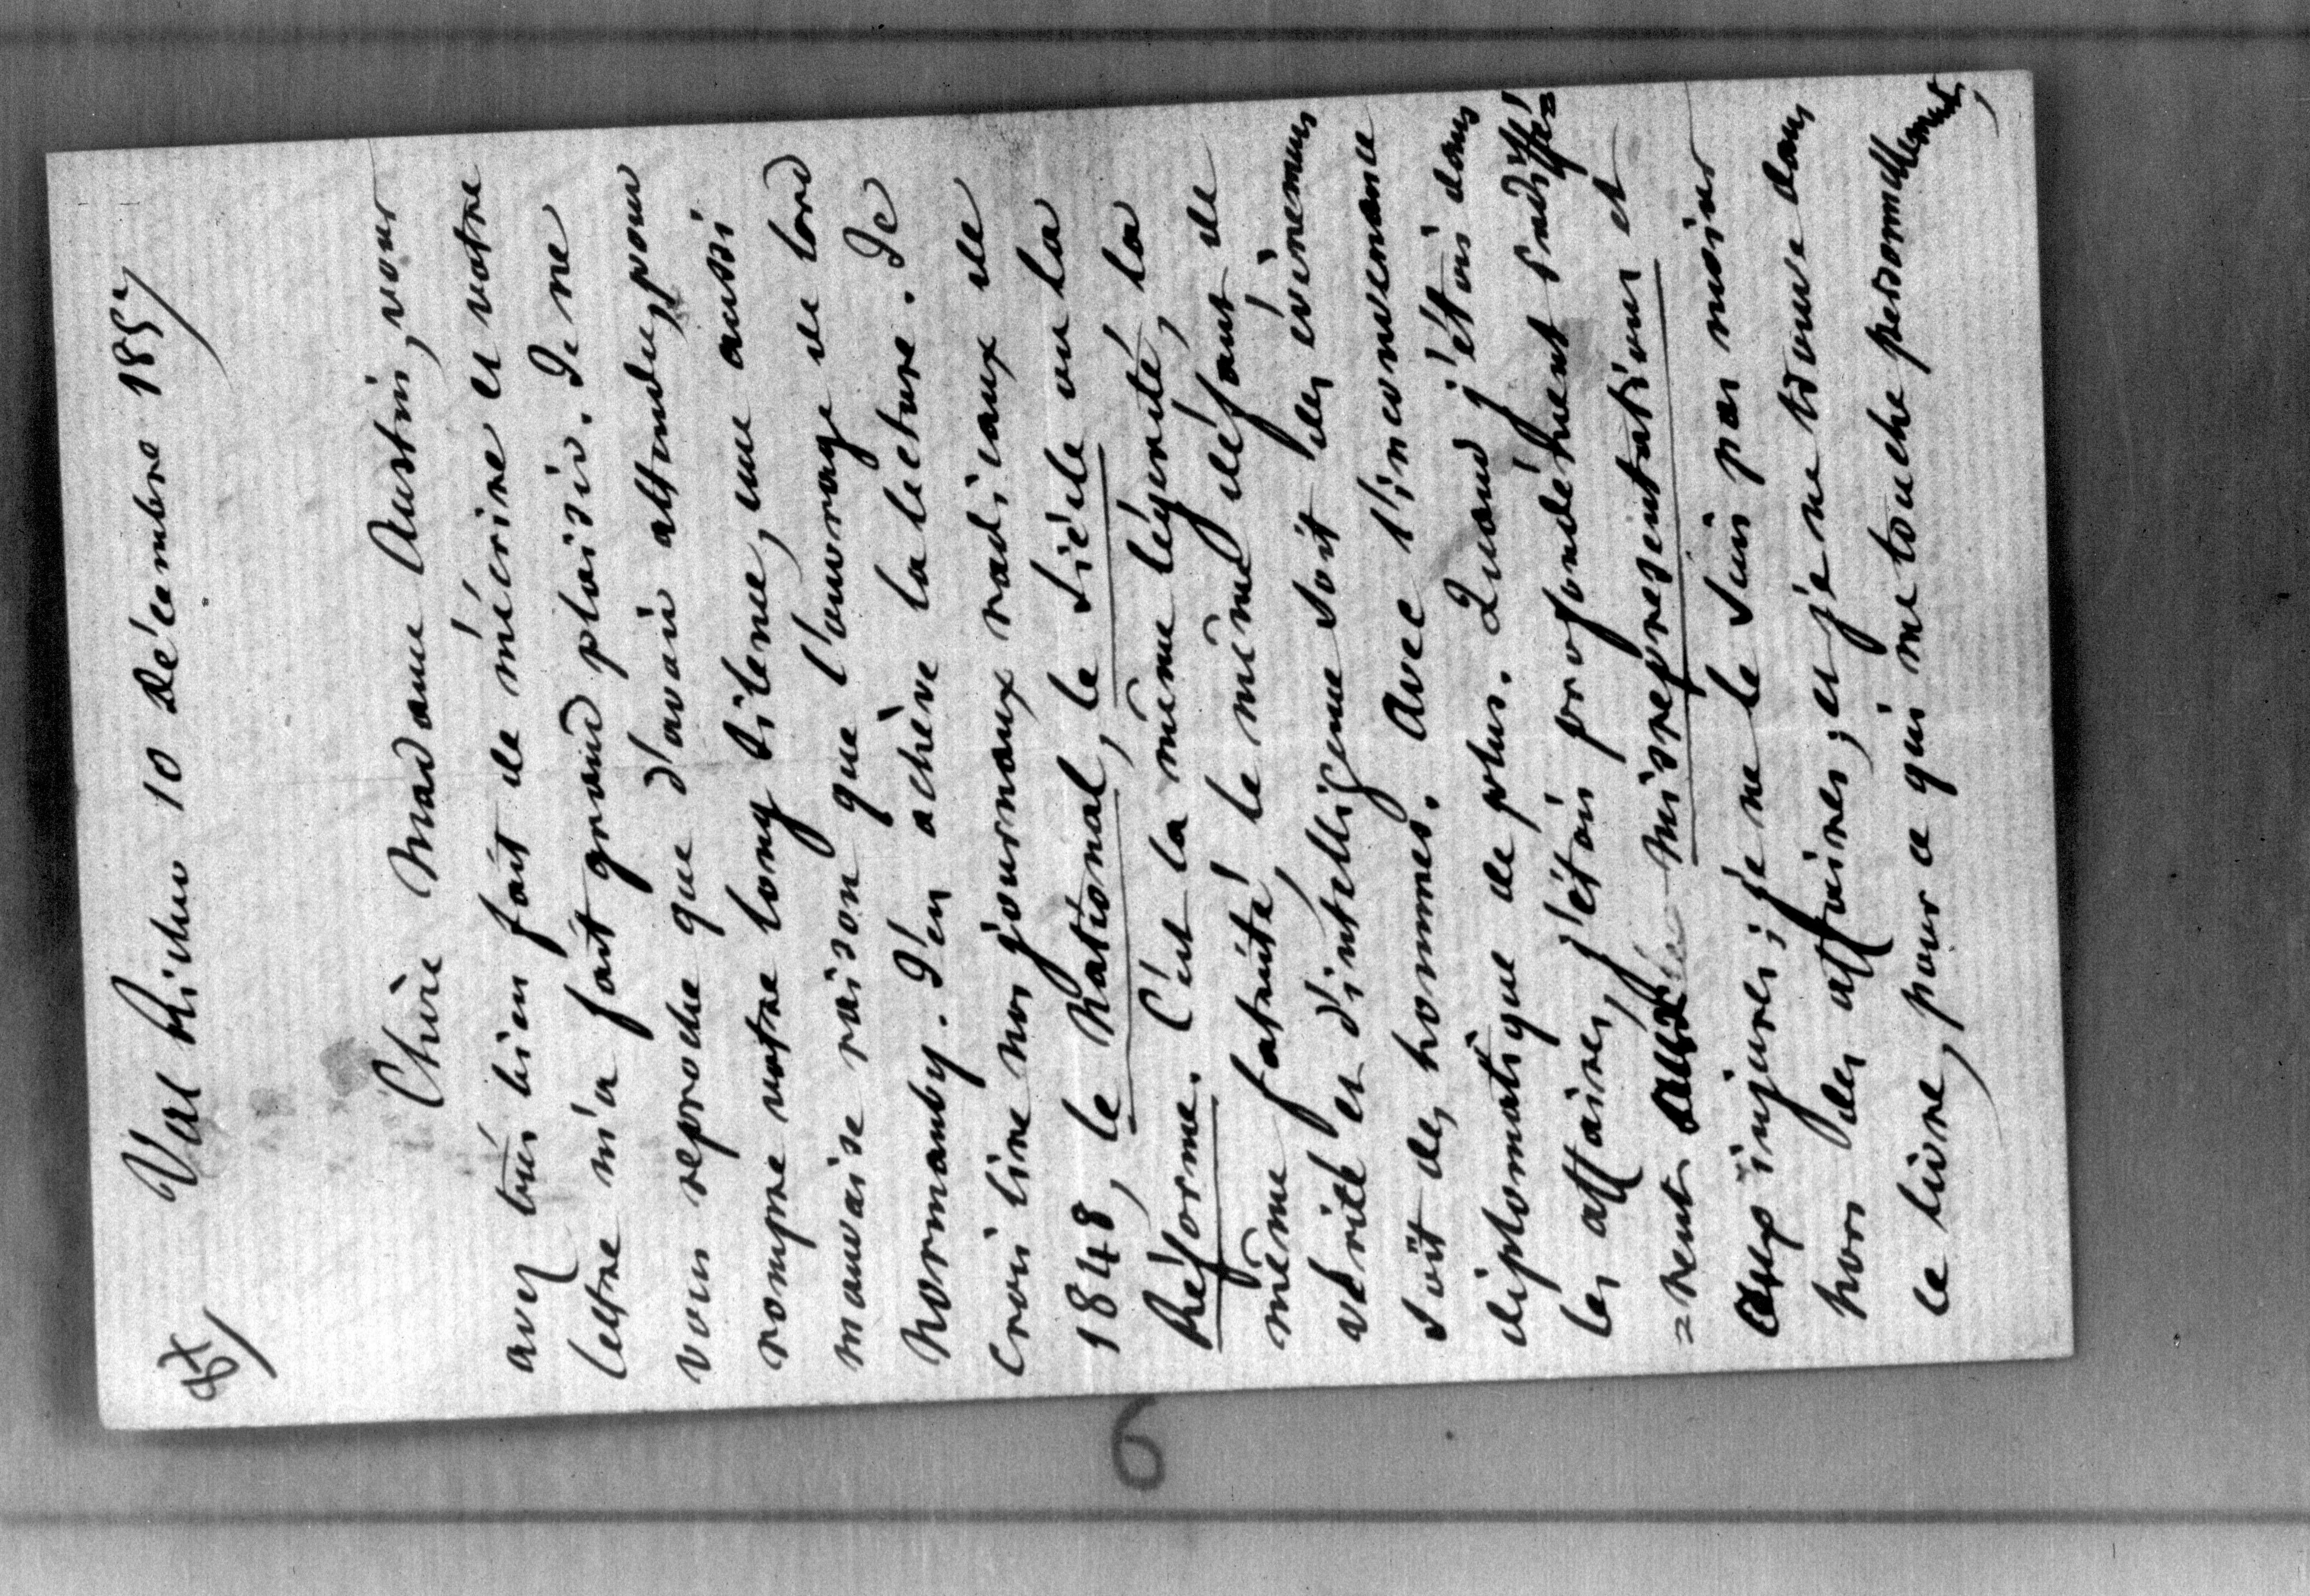 Val Richer 10 Décembre 1857
Chère Madame Austin, vous
avez bien fait de m'écrire et votre
lettre m'a fait grand plaisir. Je ne
vous reproche que d'avoir attendu, pour
rompre votre long silence, une aussi
mauvaise raison que l'ouvrage de lord
Normanby. J'en achève la lecture. Je
crois lire nos journaux radicaux de
1848, le National, le Siècle ou la
Réforme. C'est la même légèreté, la
même fatuité, le même défaut de
vérité et d'intelligence soit des évènemens
soit des hommes. Avec l'inconvenance
diplomatique de plus. Quand j'étois dans
les affaires, j'étois profondément indiffé=
=rent misrepresentations et
aux injures; je ne le suis pas moins
hors des affaires; et je ne trouve dans
ce livre, pour ce qui me touche personnellement,
6